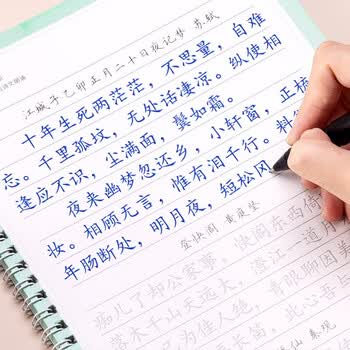 江城子 乙卯正月二十日夜记梦 苏轼
十年生死两茫茫，不思量，自难
忘。千里孤坟，无处话凄凉。纵使相
逢应不识，尘满面，鬓如霜。
夜来幽梦忽还乡，小轩窗，正梳
妆。相顾无言，惟有泪千行。料
年肠断处，明月夜，短松冈
登快阁 黄庭坚
痴儿了却公家事，快阁东西倚
落木千山天远大，澄江一道月
为佳人绝，青眼聊因美
长笛，此心吾与
仙 秦观